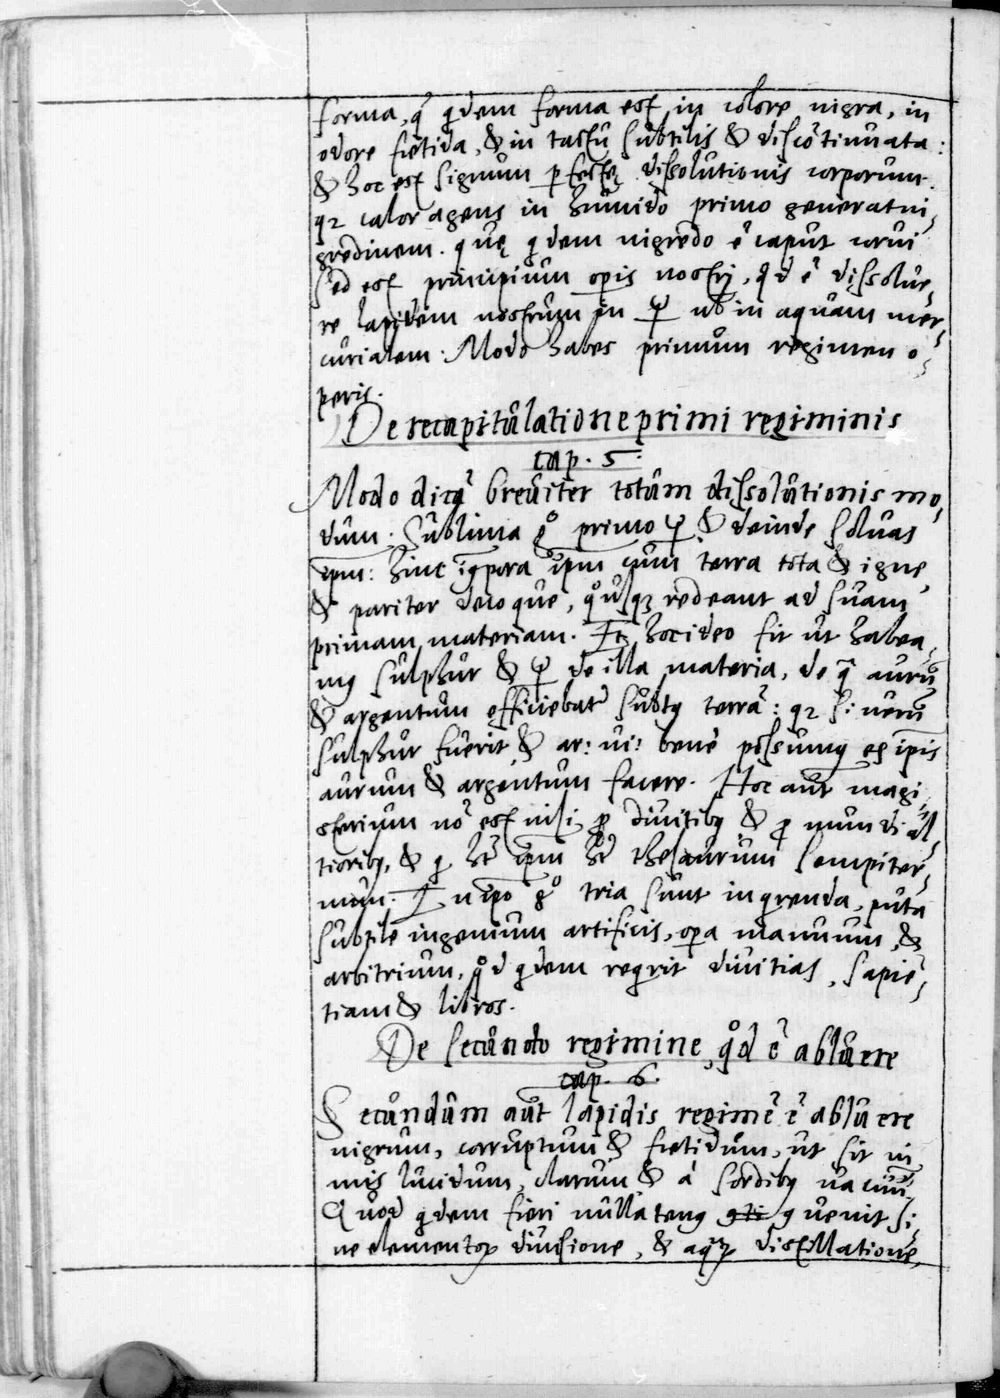 forma, q̃ qdem forma est in colore nigra, in
odore fietida, & in tactu subtilis & discõtinuata:
& hoc est signum perfectę dissolutionis corporum.
qz calor agens in humido primo generat ni,
gredinem. quę qdem nigredo ẽ caput corui
Sed est principium operis nostrj, qd ẽ dissolue,
re lapidem nostrum in ☿ ub in aquam mer,
curialem: Modo habes primum regimen o,
peris.
De recapitulatione primi regiminis
cap. 5.
Modo dicã breuiter totum dissolutionis mo,
dum: Sublima gº primo ☿ & deinde soluas
ipm: hinc īcorpora ipm cum terra tota & igne,
& pariter decoque, qusqz redeant ad suam
primam materiam. Et hoc ideo fit ut habea,
mꝰ sulphur & ☿ de illa materia, de q̃ aurũ
& argentum efficiebatr subtꝰ terrã: qz si uerũ
sulphur fuerit & ar: ui: bene possumꝰ ex ipis
aurum & argentum facere. Hoc aũt magi,
sterium nõ est nisi pro diuitibꝰ & pro mundi al,
tioribꝰ, & q hẽt ipm hẽt thesaurum sempiter,
num. In ipo gº tria sunt inqrenda, puta
subtile ingenium artificis, opera manuum, &
arbitrium, qd qdem reqrit diuitias, sapiẽ,
tiam & libros.
De secundo regimine, qd ẽ abluere
cap. 6.
Secundum aũt lapidis regimẽ ẽ abluere
nigrum, corruptum & fietidum, ut sit ni
mis lucidum, clarum & à sordibꝰ uacuũ.
Quod qdem fieri nullatenꝰ ꝯuenit si,
ne elementoꝝ diuisione, & aquaꝝ distillatione,